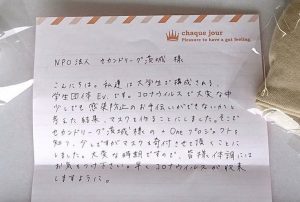 chaque jour
Pleasure to have a get feeling
NPO法人 セカンドリーグ茨城 様
こんにちは。私達は大学生で構成される、
学生団体 Ev. です。コロナウイルスで大変な中
少しでも感染防止のお手伝いができないかと
考えた結果、マスクを作ることにしました。そこで
セカンドリーグ茨城 様の +One プロジェクトを
知り、少しですがマスクを寄付させて頂くことに
しました。大変な時期ですので、皆様体調には
お気をつけ下さい。早くコロナウイルスが収束
しますように。